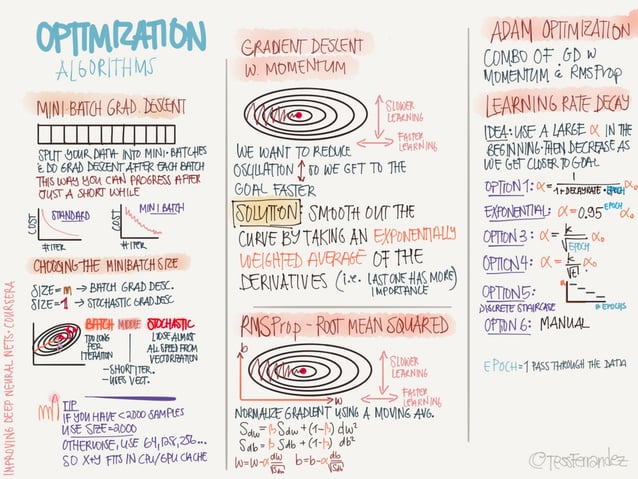 OPTIMIZATION
ALGORITHMS
MINI BATCH GRAD. DESCENT
SPLIT YOUR DATA INTO MINI-BATCHES
& DO GRAD DESCENT AFTER EACH BATCH
THIS WAY YOU CAN PROGRESS AFTER
JUST A SHORT WHILE
COST
STANDARD
# ITER
COST
MINI BATCH
# ITER
CHOOSING THE MINIBATCH SIZE
SIZE=m → BATCH GRAD DESC.
SIZE=1 → STOCHASTIC GRAD DESC
BATCH MIDDLE STOCHASTIC
TOO LONG
PER
ITERATION
LOOSE ALMOST
ALL SPEED FROM
VECTORIZATION
- SHORT ITER.
- USES VECT.
TIP
IF YOU HAVE < 2000 SAMPLES
USE SIZE=2000
OTHERWISE, USE 64, 128, 256...
SO X+Y FITS IN CPU/GPU CACHE
IMPROVING DEEP NEURAL NETS • COURSERA
GRADIENT DESCENT
W. MOMENTUM
SLOWER
LEARNING
FASTER
LEARNING
WE WANT TO REDUCE
OSCILLATION ↕ SO WE GET TO THE
GOAL FASTER
SOLUTION: SMOOTH OUT THE
CURVE BY TAKING AN EXPONENTIALLY
WEIGHTED AVERAGE OF THE
DERIVATIVES (i.e. LAST ONE HAS MORE)
IMPORTANCE
RMSProp - ROOT MEAN SQUARED
b
w
SLOWER
LEARNING
FASTER
LEARNING
NORMALIZE GRADIENT USING A MOVING AVG.
Sdw = β Sdw + (1-β) dw²
Sdb = β Sdb + (1-β) db²
w = w - α dw/√Sdw b = b - α db/√Sdb
ADAM OPTIMIZATION
COMBO OF GD W
MOMENTUM & RMSProp
LEARNING RATE DECAY
IDEA: USE A LARGE α IN THE
BEGINNING. THEN DECREASE AS
WE GET CLOSER TO GOAL
OPTION 1: α = 1/(1 + DECAYRATE • EPOCH)
EXPONENTIAL: α = 0.95^EPOCH α₀
OPTION 3: α = k/√EPOCH α₀
OPTION 4: α = k/√t α₀
OPTION 5:
DISCRETE STAIRCASE
α
# EPOCHS
OPTION 6: MANUAL
EPOCH = 1 PASS THROUGH THE DATA
©TessFerrandez